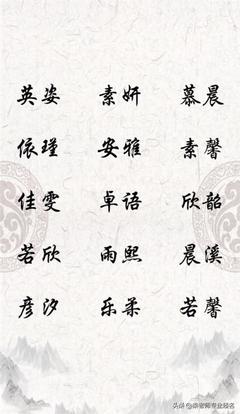 英姿 素妍 慕晨
依瑾 安雅 素馨
佳雯 卓语 欣韶
若欣 雨熙 晨溪
彦汐 乐柔 若馨
头条 @崇老师专业起名